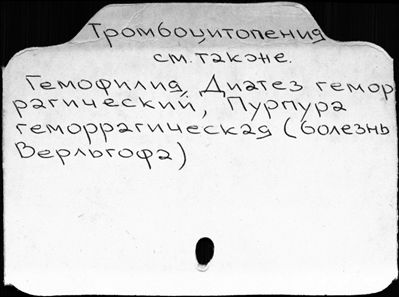 Тромбоцитопения
см. также.
Гемофилия, Диатез гемор
рагический, Пурпура
геморрагическая (болезнь
Верльгофа)